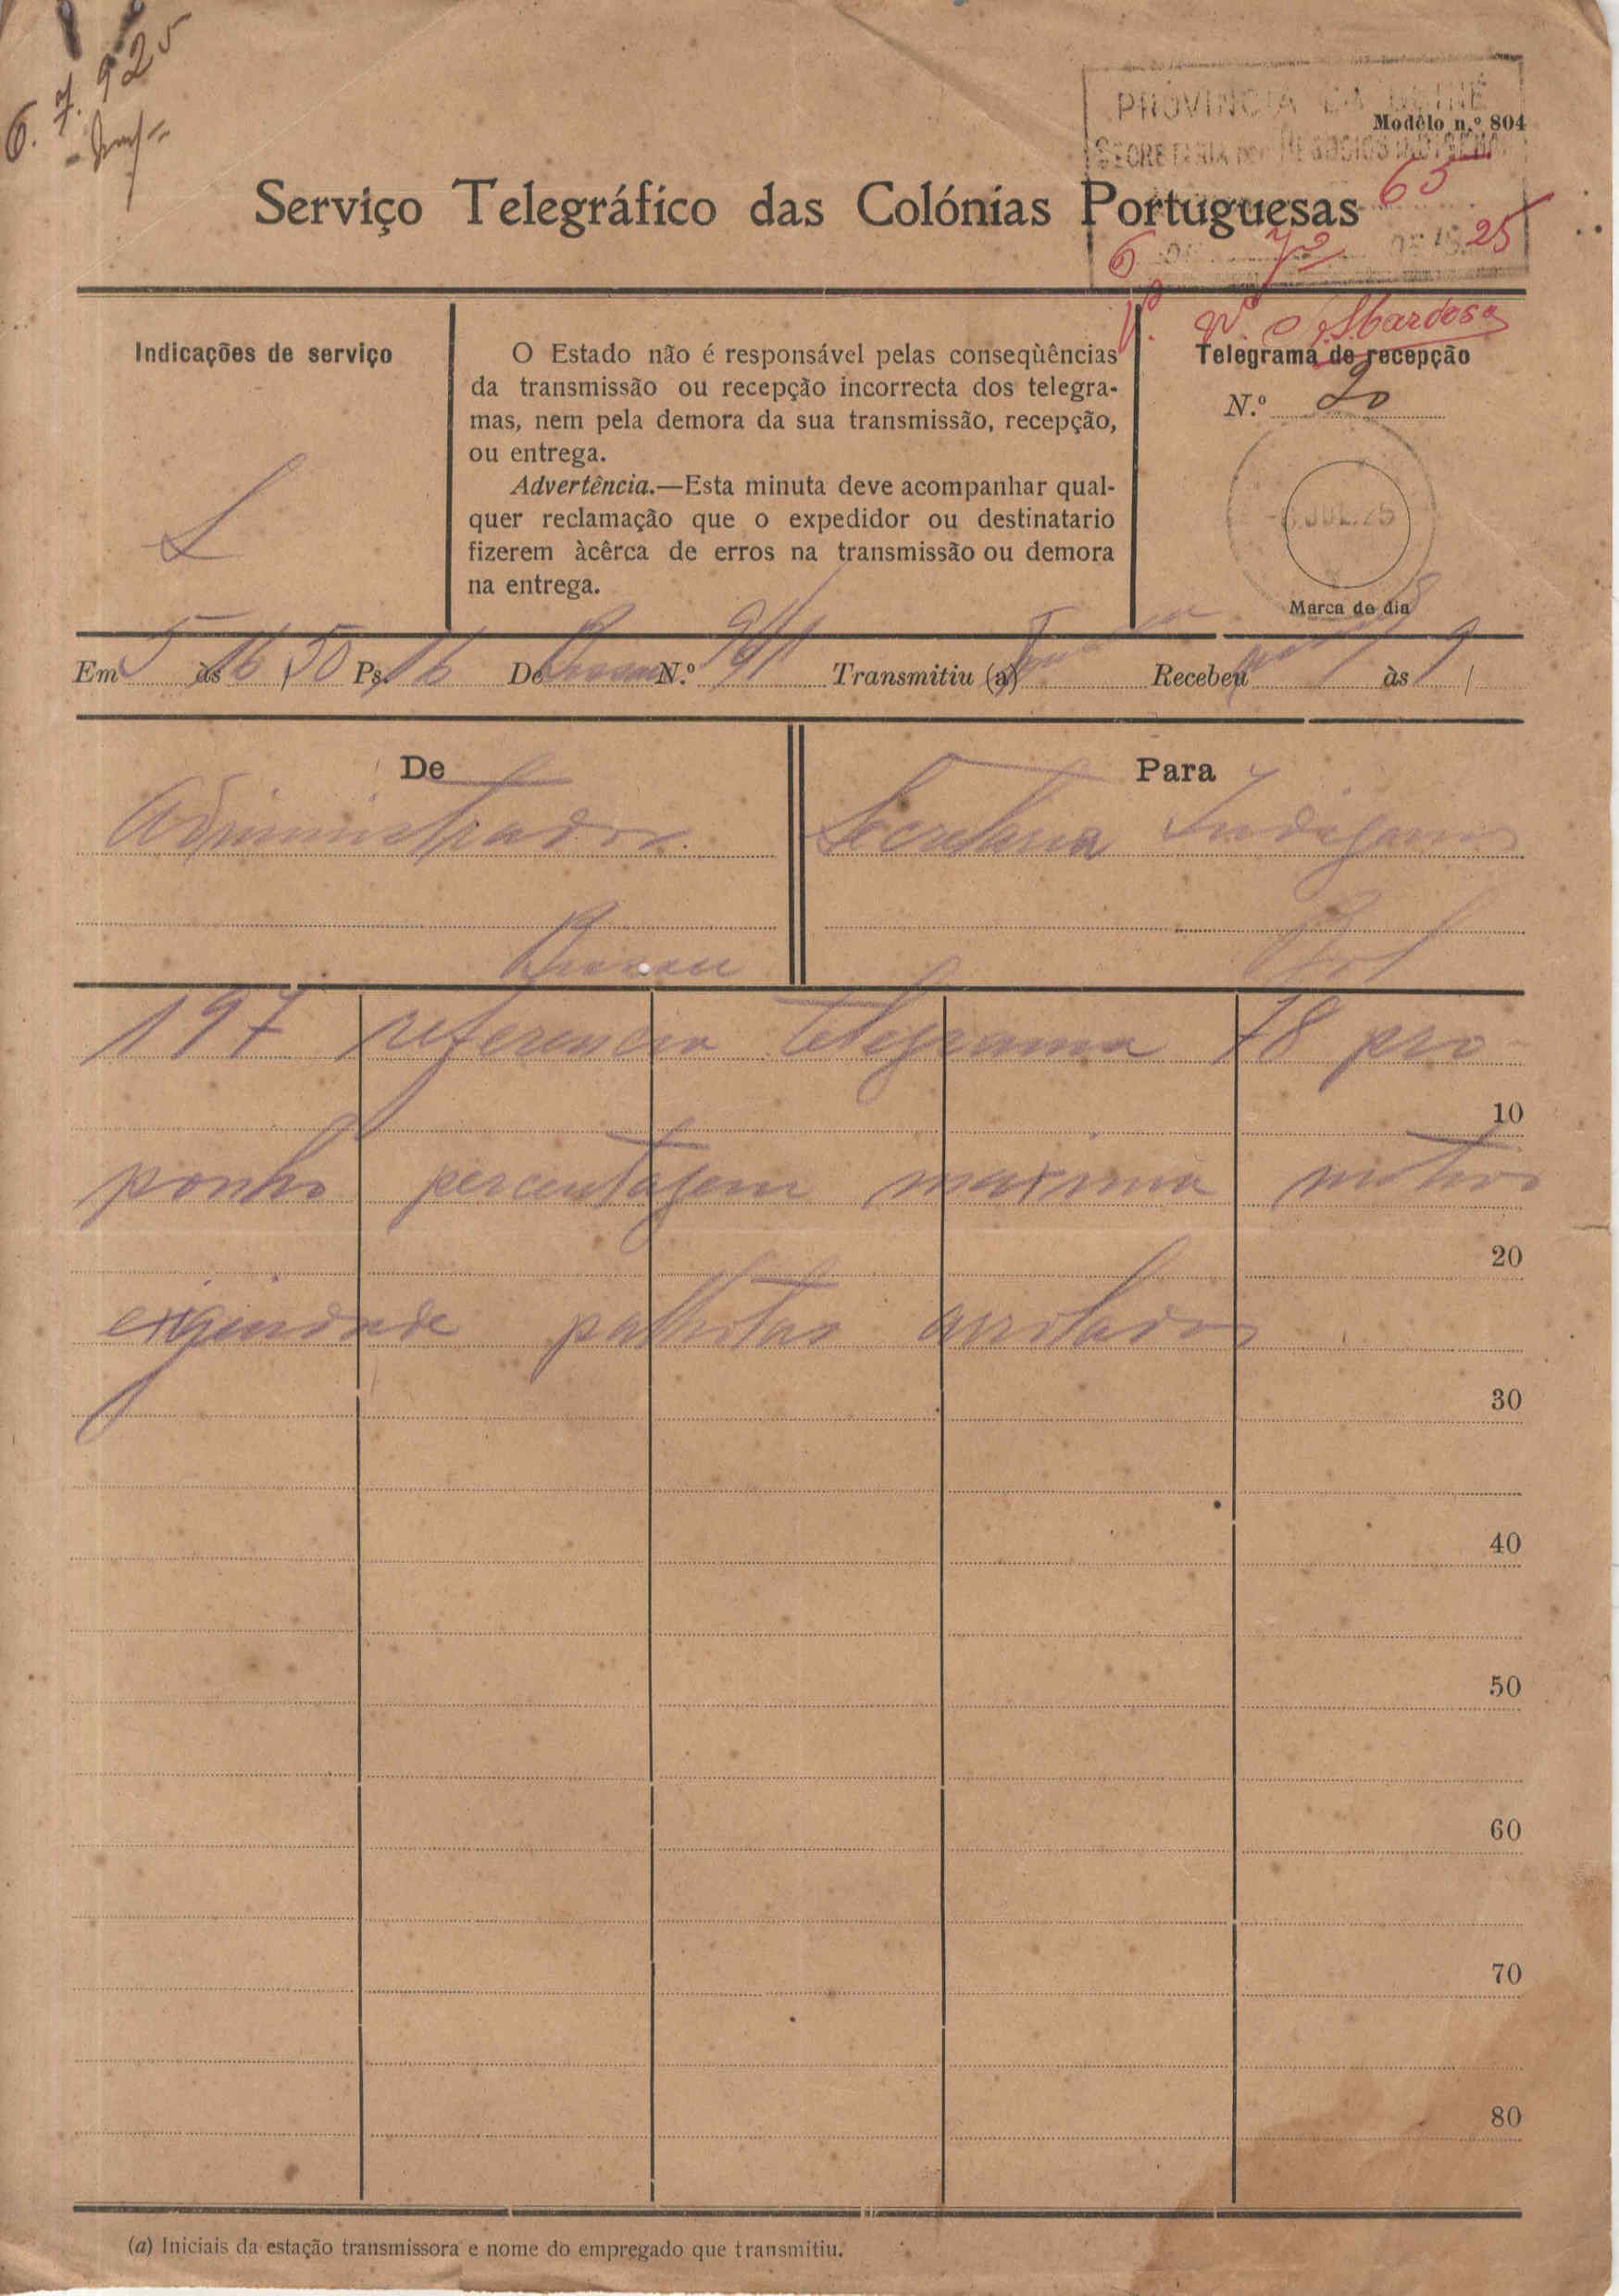 6. 7. 925
PROVINCIA DA GUINÉ
Modêlo n.º 804
SECRETARIA DOS NEGOCIOS INDIGENAS
65
Serviço Telegráfico das Colónias Portuguesas
6 DE 7º DE 1925
Indicações de serviço
L
O Estado não é responsável pelas conseqùências
da transmissão ou recepção incorrecta dos telegra-
mas, nem pela demora da sua transmissão, recepção,
ou entrega.
Advertência.—Esta minuta deve acompanhar qual-
quer reclamação que o expedidor ou destinatario
fizerem àcêrca de erros na transmissão ou demora
na entrega.
Telegrama de recepção
N.º 20
-6 JUL. 25
Marca do dia
Em 5 às 16/50 Ps. 16 De N.º 91 Transmitiu (a) Recebeu às /
De
Administrador
Para
Secretaria Indigenas
Bol
197 referencia telegrama 78 pro
10
ponho percentagem maxima motivo
20
exiguidade palhotas arroladas
30
40
50
60
70
80
(a) Iniciais da estação transmissora e nome do empregado que transmitiu.